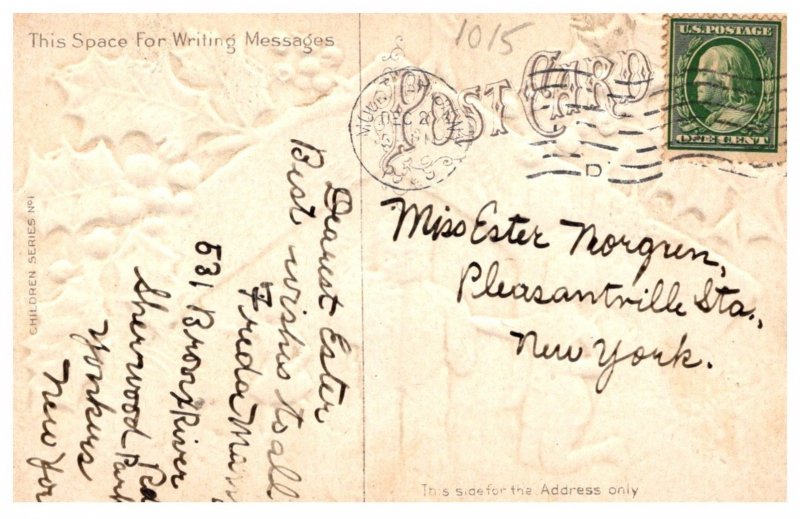 This Space For Writing Messages
1015
POST CARD
U.S. POSTAGE
ONE CENT
DEC 2
D
CHILDREN SERIES No 1
Dearest Ester
Best wishes to all
Freda
531 Bronx River
Rd
Sherwood Park
Yonkers
New Yor
Miss Ester Norgren,
Pleasantville Sta.,
New York.
This side for the Address only